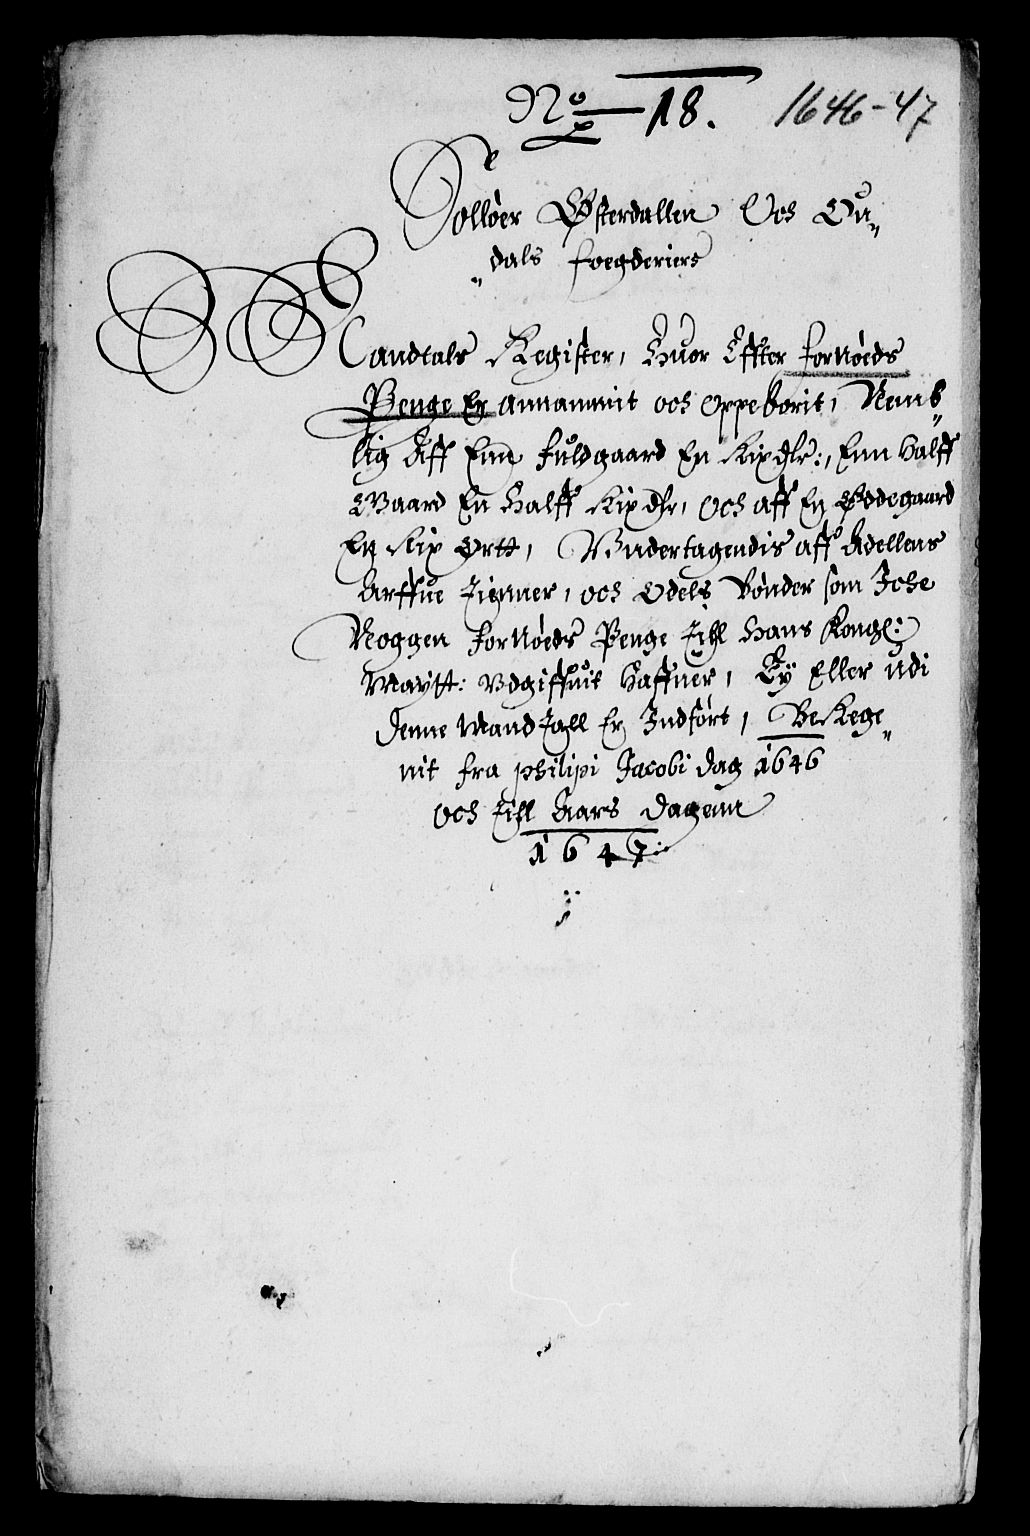 No 18. 1646-47
Solløer Østerdallen Och Ou„
„dals foegderiers
Mandtals Register, Huor Effter fornøeds
Penge Er annammit och oppeborit, Nemb„
lig Aff Enn fuldgaard En Rixdlr:, Enn Halff
Gaard En Halff Rixdlr, Och aff En Ødegaard
En Rix Ortt, Vndertagendis aff Adellens
Arffue Tienner, och Odels Bønder som Iche
Noggen fornøeds Penge Till Hans Kongl:
Maytt: Vdgiffuit Haffuer, Ey Eller udi
denne Mand Tall Er Indført, BeRege„
nit fra Philipi Jacobi dag 1646
och Till Aars Dagenn
1647: